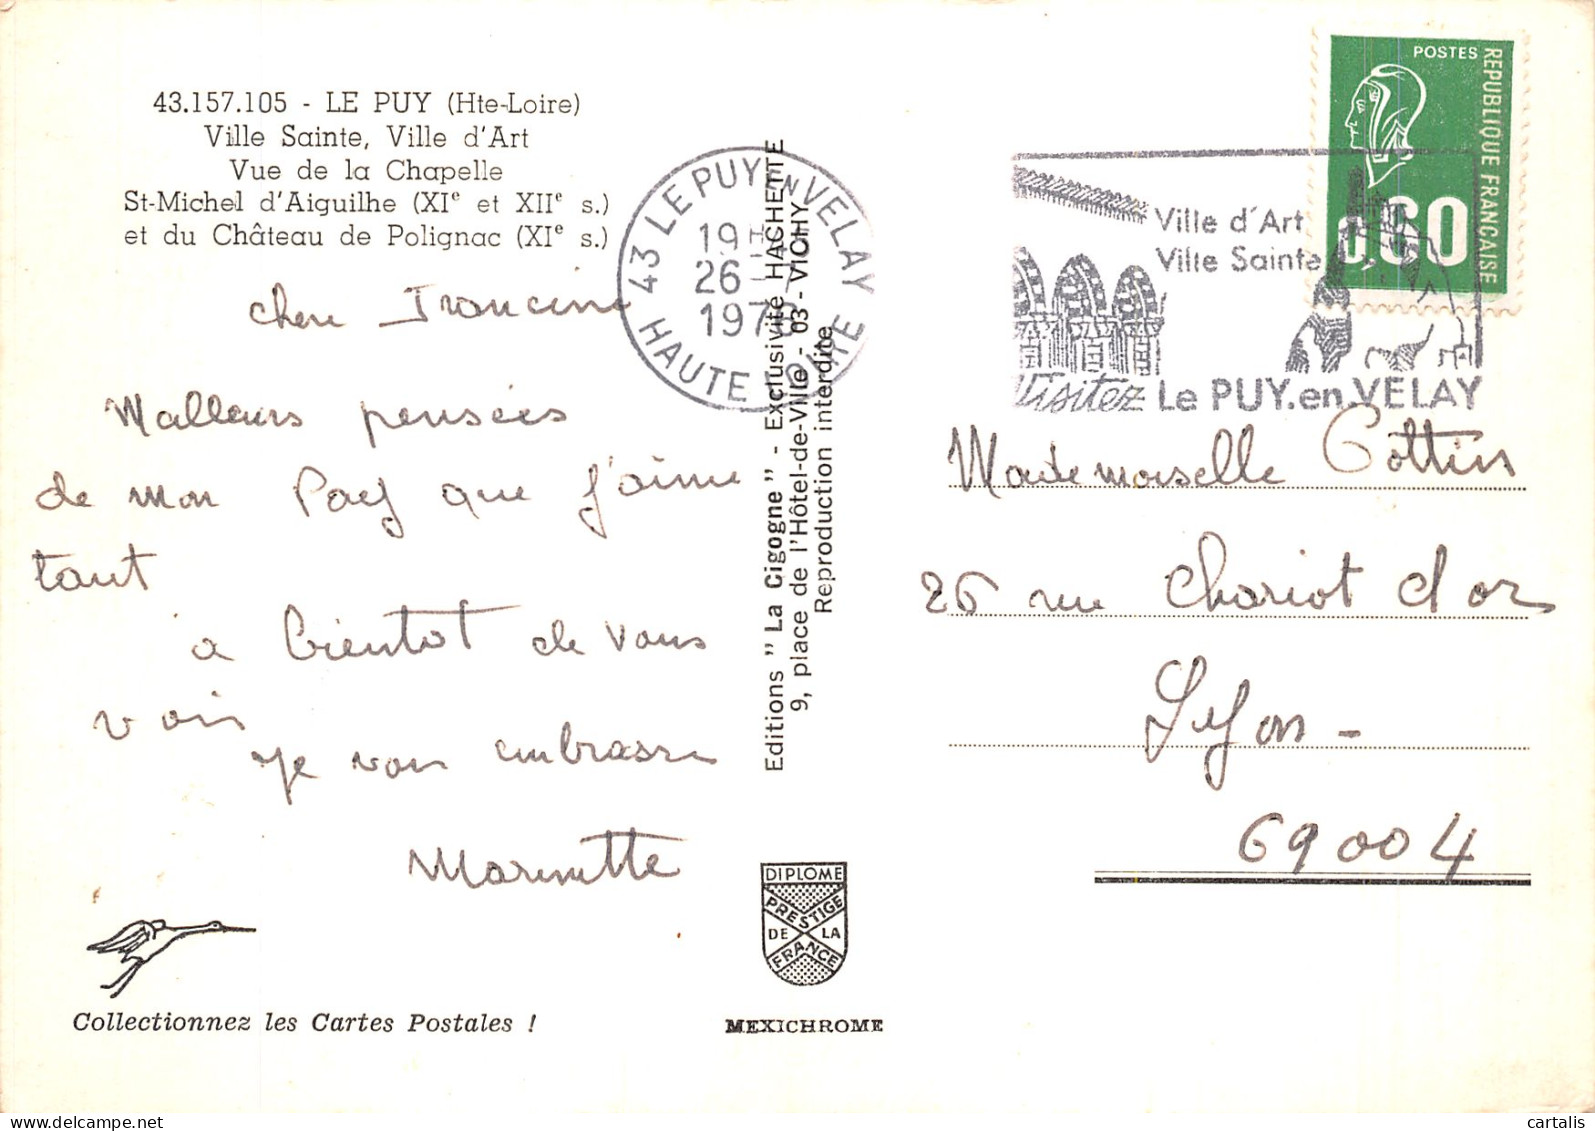 43.157.105 - LE PUY (Hte-Loire)
Ville Sainte, Ville d'Art
Vue de la Chapelle
St-Michel d'Aiguilhe (XIe et XIIe s.)
et du Château de Polignac (XIe s.)
chere Francine
Malleurs pensées
de mon Pay que j'aime
tant
a bientot de vous
voir
je vous embrasse
Marinette
Collectionnez les Cartes Postales !
43 LE PUY EN VELAY
19 H
26
HAUTE LOIRE
Editions " La Cigogne " - Exclusivité HACHETTE
9, place de l'Hôtel-de-Ville - 03 - VICHY
Reproduction interdite
DIPLOME
PRESTIGE
DE LA
FRANCE
MEXICHROME
POSTES
REPUBLIQUE FRANCAISE
0,60
Ville d'Art
Ville Sainte
Visitez Le PUY.en.VELAY
Mademoiselle Cottin
26 rue Chariot d'or
Lyon -
69004
cartalis